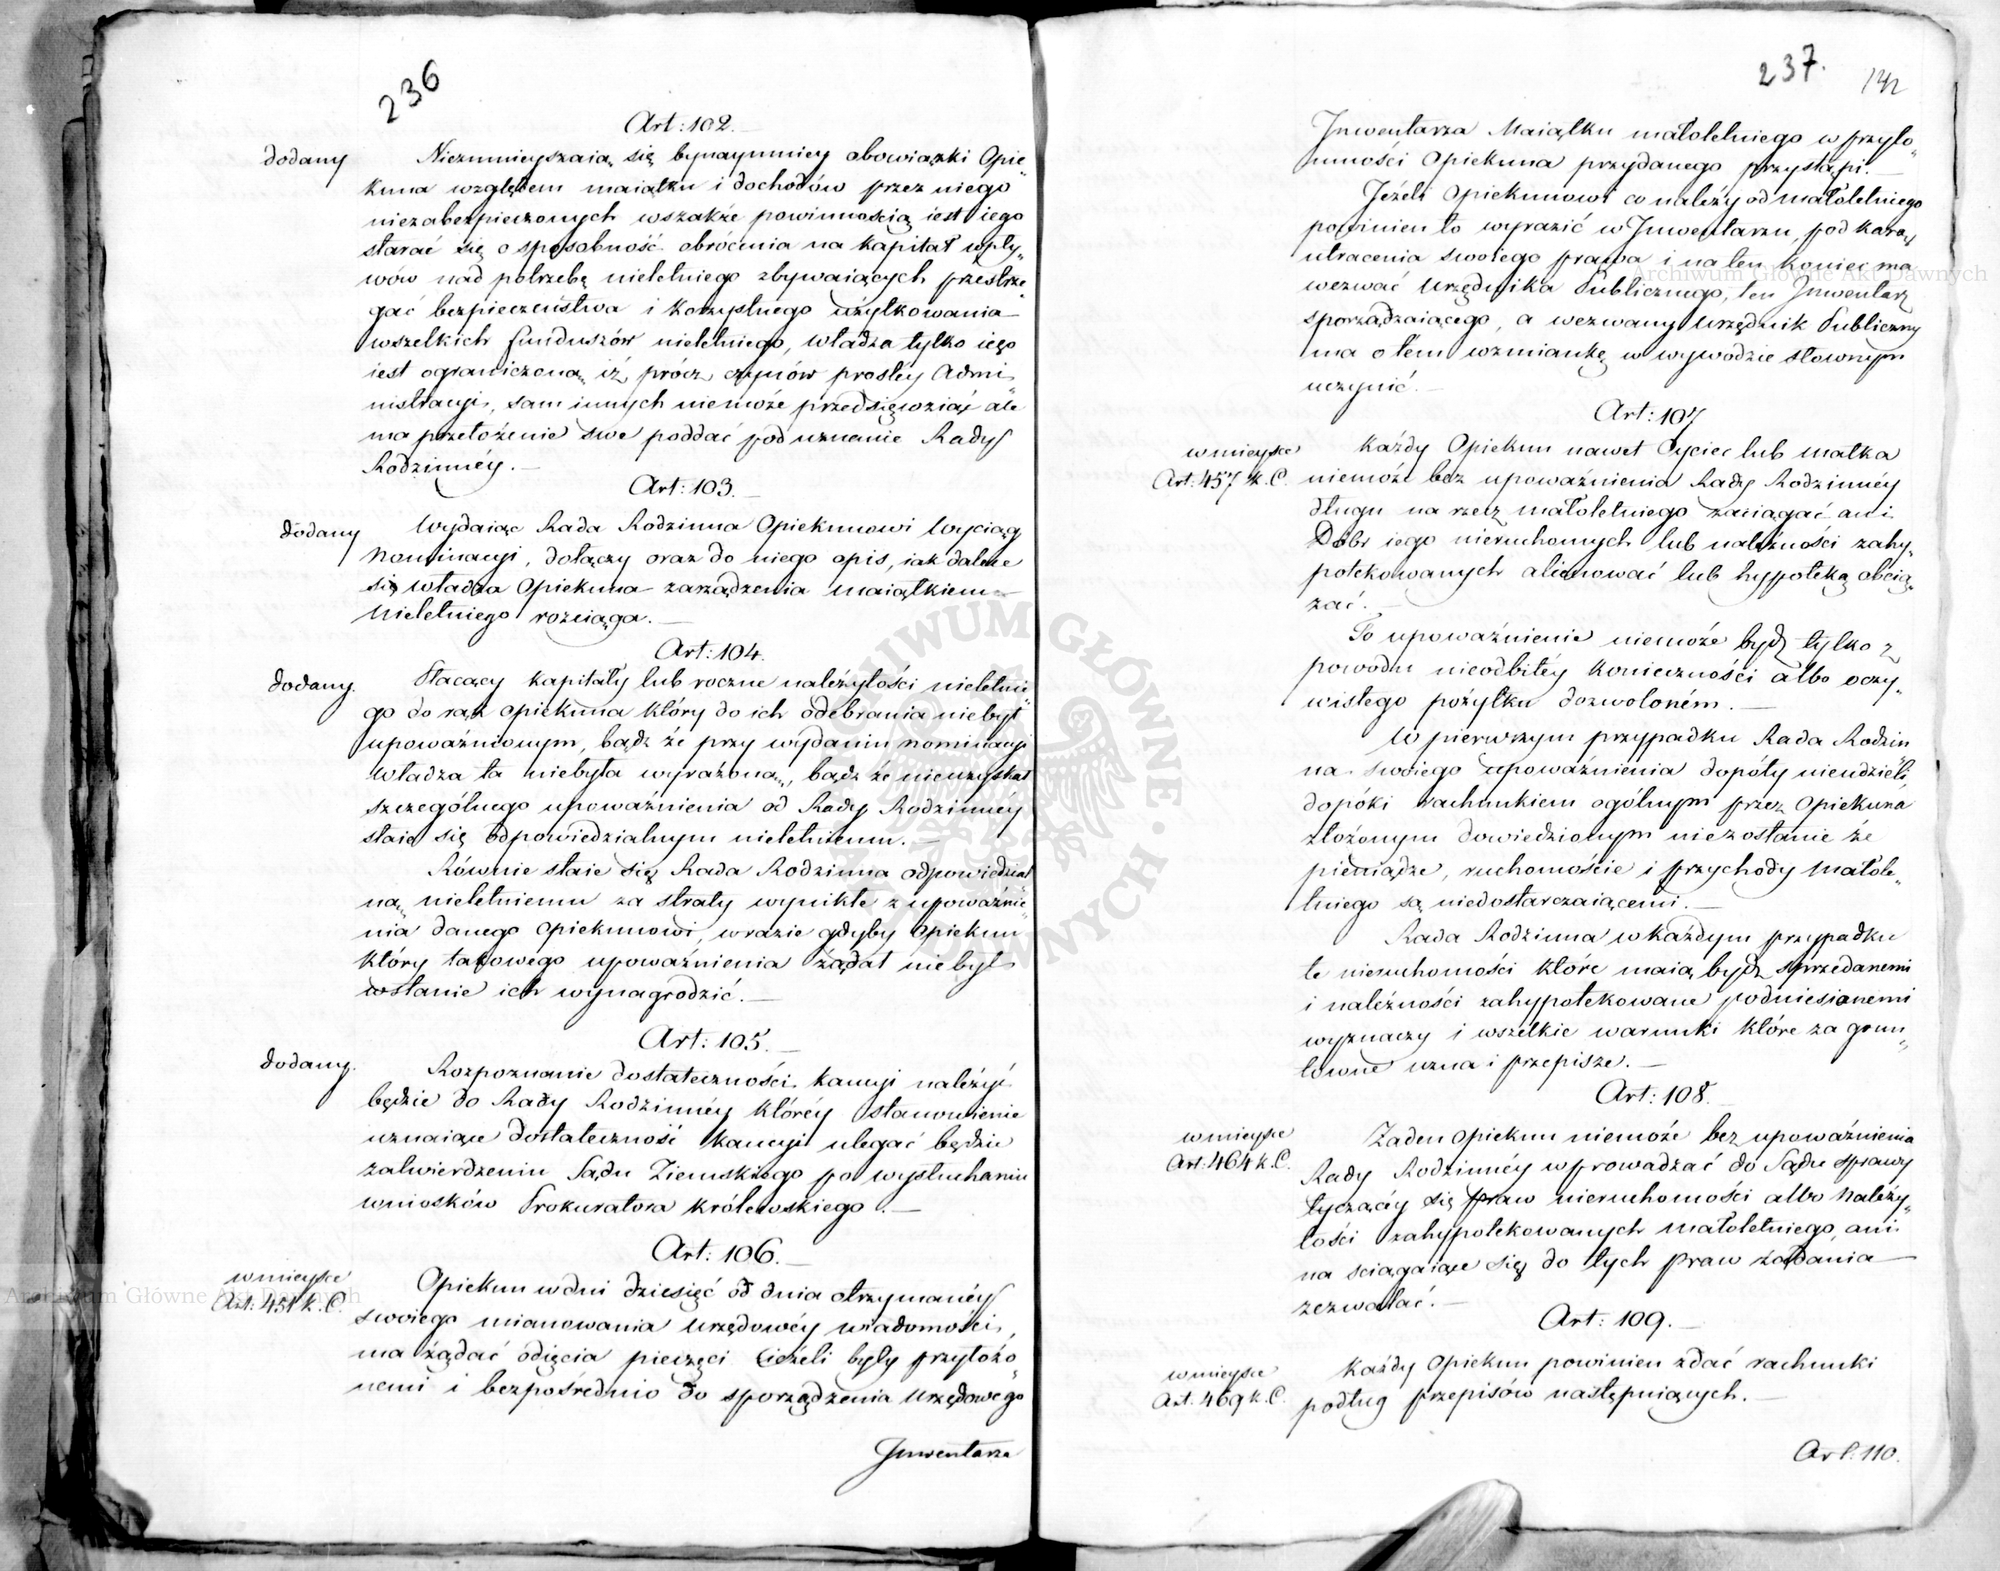 236
Art: 102.
dodany
Niezmnieyszaią się bynaymniey obowiązki Opie„
kuna względem maiątku i dochodów przez niego
niezabezpieczonych wszakże powinnością iest iego
starać się o sposobność obrócenia na kapitał wpły„
wów nad potrzebę nieletniego zbywaiących przestrze„
gać bezpieczeństwa i korzystnego użytkowania
wszelkich funduszów nieletniego, władza tylko iego
iest ograniczoną, iż prócz czynów prostéy Admi„
nistracyi, sam innych niemoże przedsięwziąć ale
ma przełożenie swe poddać pod uznanie Rady
Rodzinnéy.
Art: 103.
dodany
Wydaiąc Rada Rodzinna Opiekunowi Wyciąg
Nominacyi, dołączy oraz do niego opis, iak dalece
się władza Opiekuna zarządzenia maiątkiem
Nieletniego rozciąga.
Art: 104.
dodany.
Płacący kapitały lub roczne należytości nieletnie„
go do rąk opiekuna który do ich odebrania niebył
upoważnionym, bądź że przy wydaniu nominacyi
władza ta niebyła wyrażoną, bądź że nieuzyskał
szczególnego upoważnienia od Rady Rodzinnéy
staie się odpowiedzialnym nieletniemu.
Równie staie się Rada Rodzinna odpowiedzial
ną, nieletniemu za straty wynikłe z upoważnie„
nia danego Opiekunowi, wrazie gdyby Opiekun
który takowego upoważnienia żądał niebył
wstanie ich wynagrodzić.
Art: 105.
dodany.
Rozpoznanie dostateczności kaucyi należyć
będzie do Rady Rodzinnéy któréy stanowienie
uznaiące dostateczność kaucyi ulegać będzie
zatwierdzeniu Sądu Ziemskiego po wysłuchaniu
wniosków Prokuratora Królewskiego.
Art: 106.
wmieysce
Art. 451 K. C.
Opiekun wdni dziesięć od dnia otrzymanéy
swoiego mianowania urzędowéy wiadomości,
ma żądać odięcia pieczęci ieżeli były przyłożo„
nemi i bezpośrednio do sporządzenia urzędowego
Inwentarza
237.
Inwentarza Maiątku małoletniego w przyto„
mności Opiekuna przydanego przystąpi.
Jeżeli Opiekunowi co należy od małoletniego
powinien to wyrazić w Inwentarzu, pod karą
utracenia swoiego prawa i na ten koniec ma
wezwać Urzędnika Publicznego, ten Inwentarz
sporządzaiącego, a wezwany Urzędnik Publiczny
ma o tém wzmiankę w wywodzie słownym
uczynić.
Art: 107
wmieysce
Art: 457 K. C.
Każdy Opiekun nawet Oyciec lub matka
niemoże bez upoważnienia Rady Rodzinnéy
długu na rzecz małoletniego zaciągać ani
Dóbr iego nieruchomych lub należności zahy„
potekowanych alienować lub hypoteką obcią„
żać.
To upoważnienie niemoże bydź tylko z
powodu nieodbitéy konieczności albo oczy„
wistego pożytku dozwoloném.
W pierwszym przypadku Rada Rodzin
na swoiego upoważnienia dopóty nieudzieli,
dopóki rachunkiem ogólnym przez Opiekuna
złożonym dowiedzionym niezostanie że
pieniądze, ruchomości i przychody małole„
tniego są niedostarczaiącemi.
Rada Rodzinna wkażdym przypadku
te nieruchomości które maią bydź sprzedanemi
i należności zahypotekowane podniesionemi
wyznaczy i wszelkie warunki które za grun„
towne uzna i przepisze.
Art: 108.
wmieysce
Art: 464 K. C.
Żaden Opiekun niemoże bez upoważnienia
Rady Rodzinnéy wprowadzać do Sądu sprawy
tyczącéy się praw nieruchomości albo należy„
tości zahypotekowanych małoletniego, ani
na ściągaiące się do tych praw żądania
zezwalać.
Art: 109.
wmieysce
Art. 469 K. C.
Każdy Opiekun powinien zdać rachunki
podług przepisów następuiących.
Art. 110.
Archiwum Główne Akt Dawnych
Archiwum Główne Akt Dawnych
ARCHIWUM GŁÓWNE AKT DAWNYCH